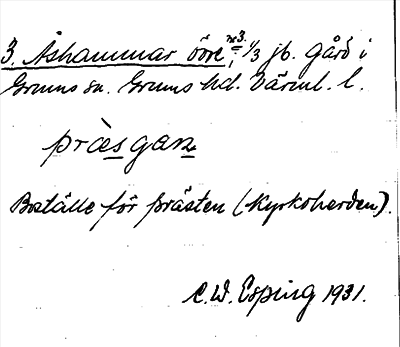 3. Åshammar övre, n:3. 1/3 jb. gård i
Grums sn. Grums hd. Värml. l.
pràsgan
Boställe för prästen (kyrkoherden).
C.W. Esping 1931.